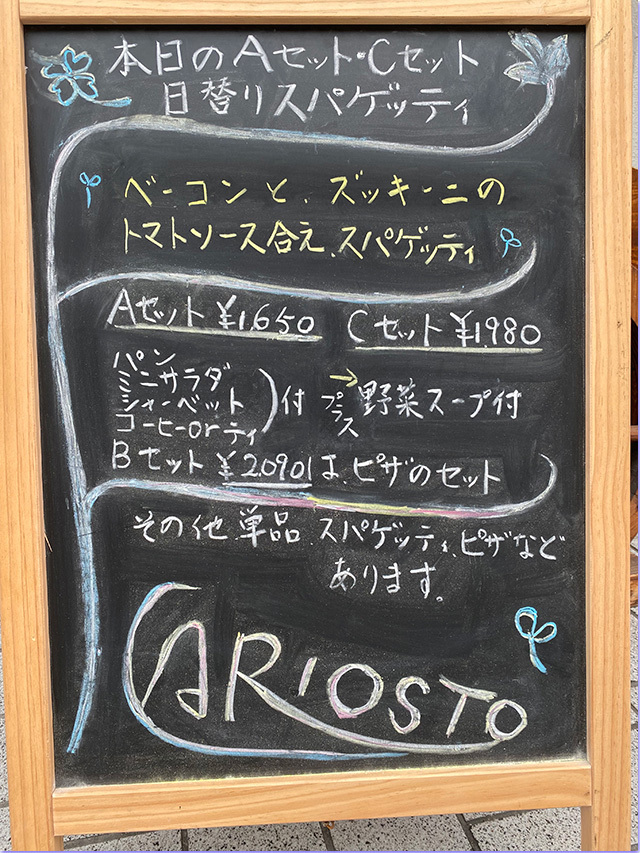 本日のAセット・Cセット
日替りスパゲッティ
ベーコンと、ズッキーニの
トマトソース合え、スパゲッティ
Aセット ¥1,650 Cセット ¥1,980
パン
ミニサラダ
シャーベット
コーヒーorティ
付
プラス
→野菜スープ付
Bセット ¥2,090は、ピザのセット
その他、単品、スパゲッティ、ピザなど
あります。
ARIOSTO